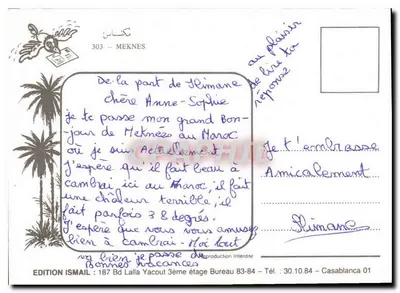 مكناس
303 – MEKNES
au plaisir
de lire ta
réponse
De la part de Slimane
chère Anne-Sophie
je te passe mon grand Bon-
jour de Meknees au Maroc
où je suis Actuelement
j'espère qu'il fait beau à
cambrai ici au Maroc il fait
une châleur terrible, il
fait parfois 38 degrés.
j'espère que vous vous amusez
bien à cambrai. Moi tout
va bien je passe de
Bonnes vacances
Je t'embrasse
Amicalement
Slimane
Reproduction Interdite
EDITION ISMAIL : 187 Bd Lalla Yacout 3ème étage Bureau 83-84 – Tél. : 30.10.84 - Casablanca 01